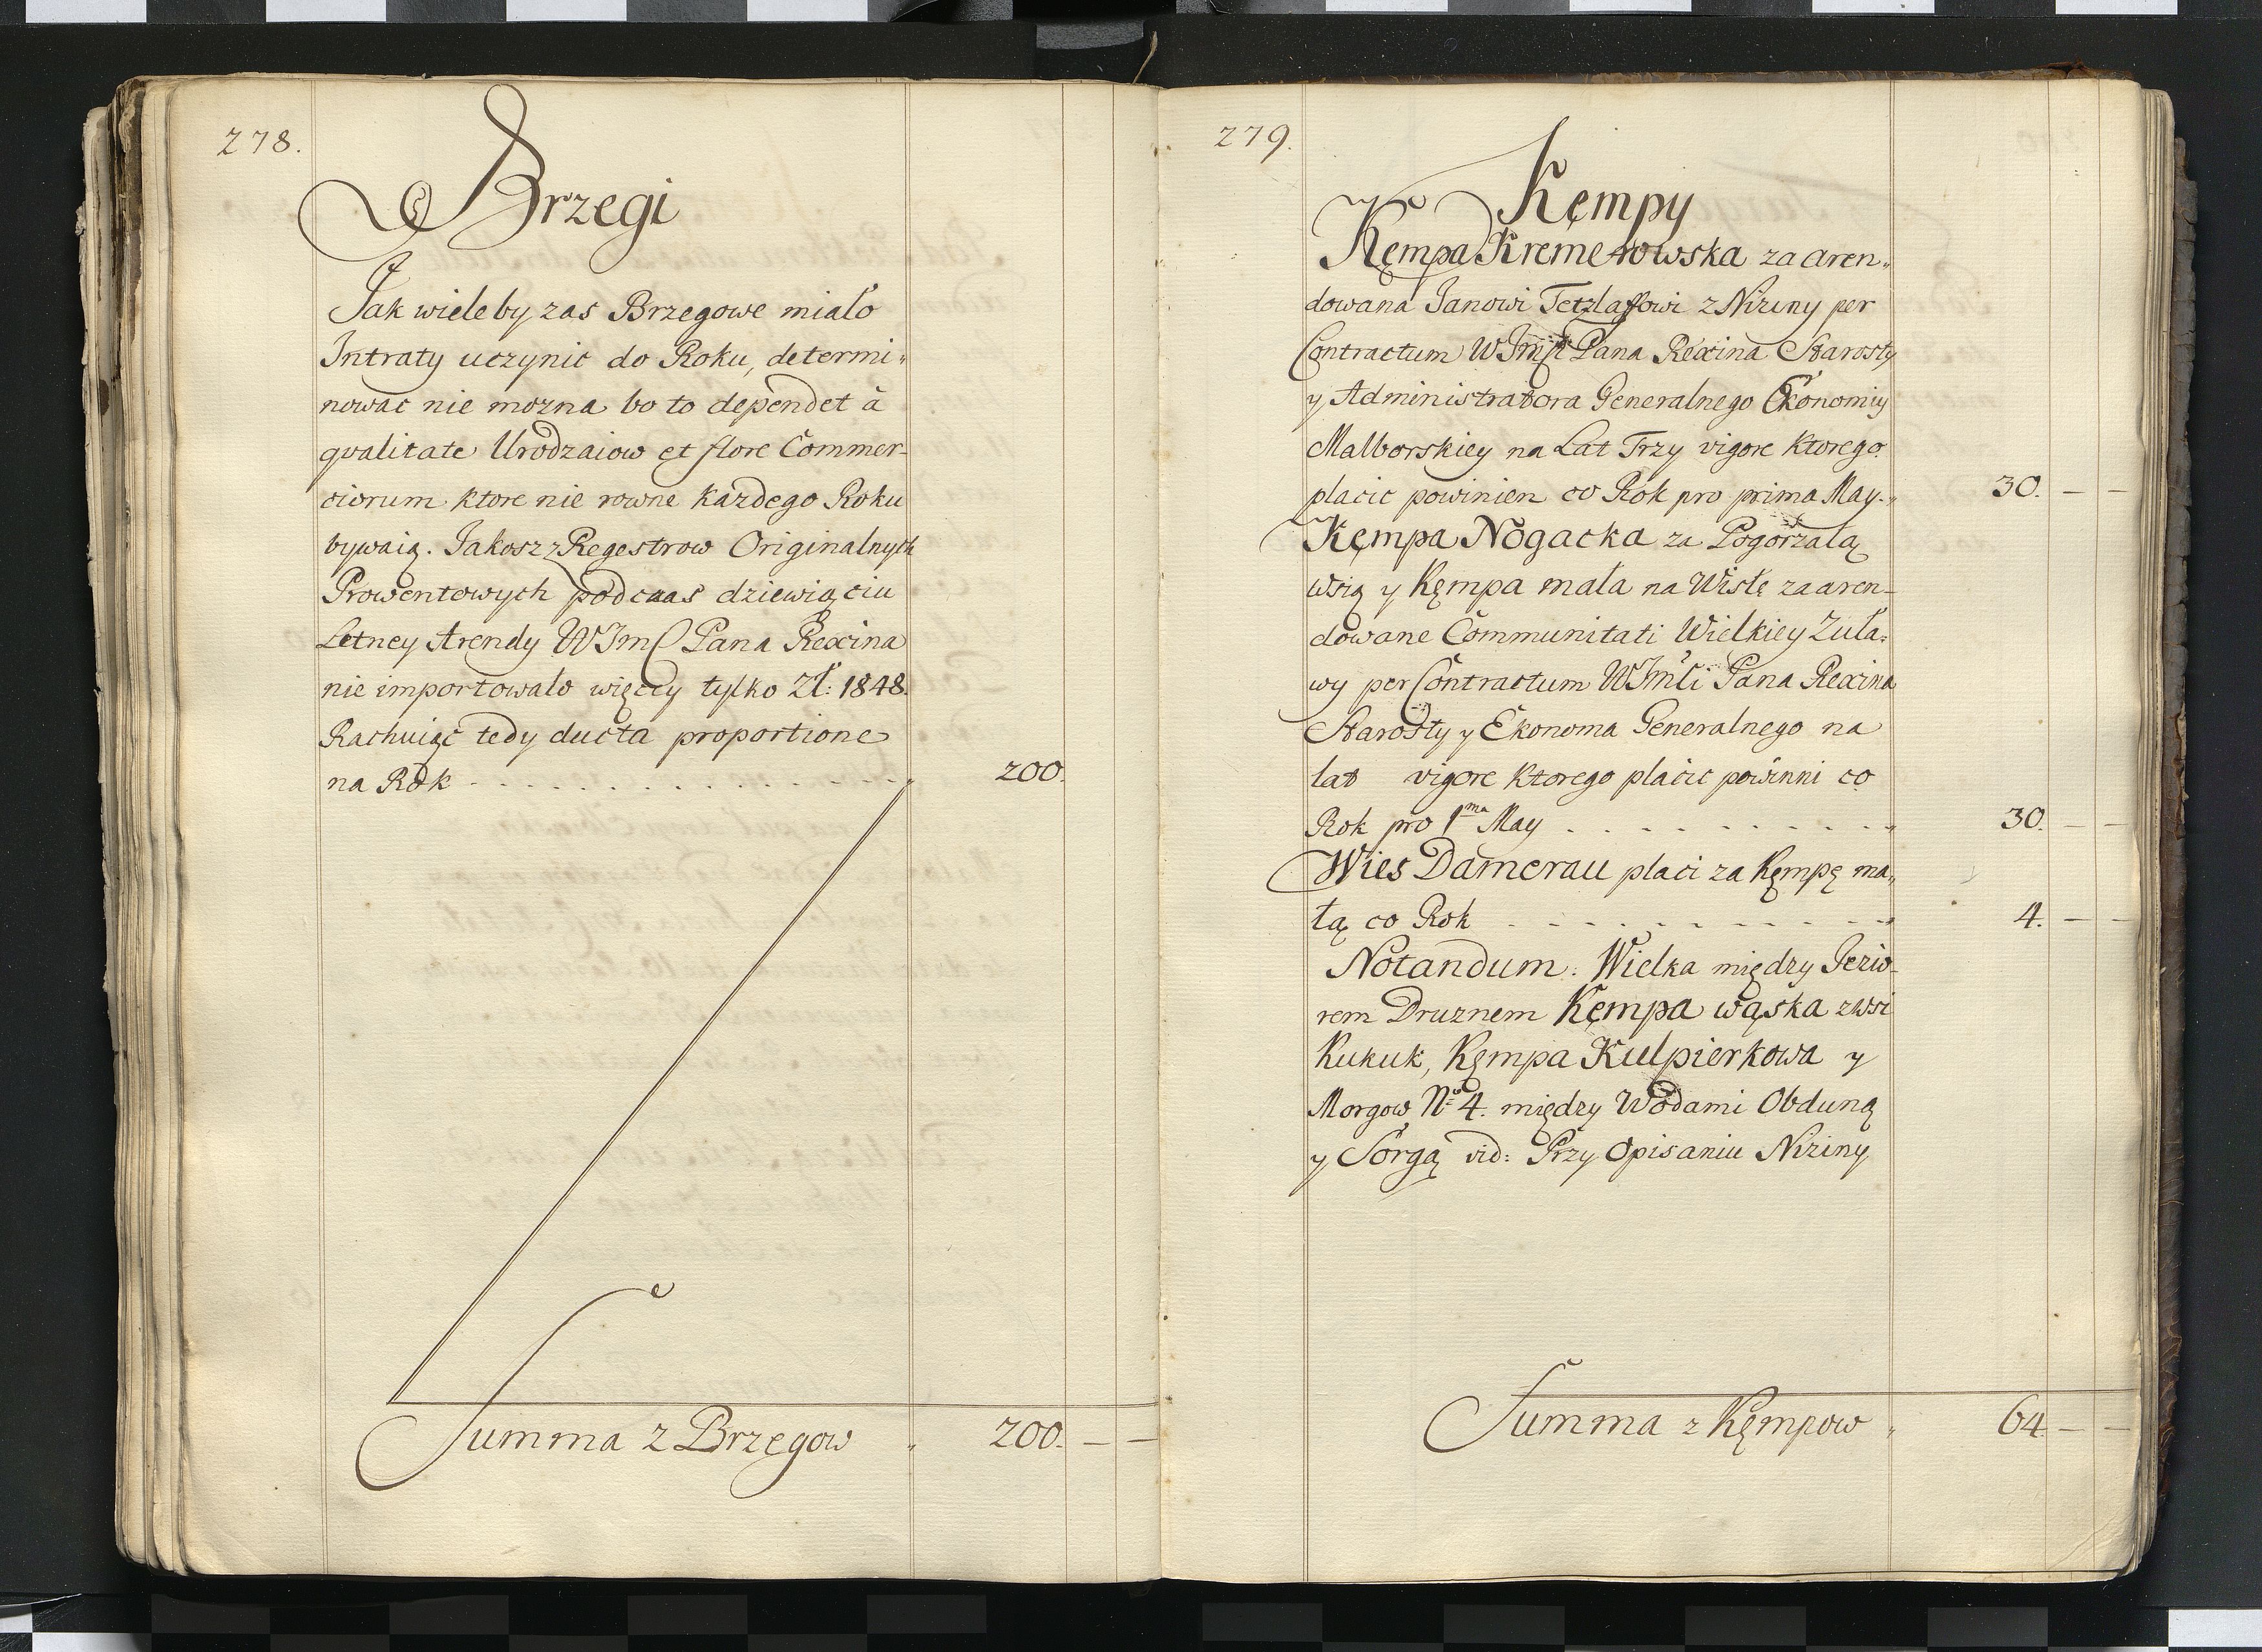 278.
Brzegi
Jak wiele by zas Brzegowe miało
Intraty uczynic do Roku, determi„
nowac nie mozna bo to dependet à
qvalitate Urodzaiow et flore Commer-
ciorum ktore nie rowne kazdego Roku
bywaią. Jakosz z Regestrow Originalnych
Prowentowych podczas dziewiąciu
Letney Arendy WJmC Pana Rexina
nie importowało więcey tylko Zł: 1848.
Rachuiąc tedy ducta proportione
na Rok 200.
Summa z Brzegow 200. — —
279.
Kęmpy
Kęmpa Kremerowska zaaren„
dowana Janowi Tetzlaffowi z Niziny per
Contractum WJmści Pana Rexina Starosty
y Administratora Generalnego Ekonomiy
Malborskiey na Lat Trzy vigore ktorego
płacic powinien co Rok pro prima May. 30. — —
Kęmpa Nogacka za Pogorzałą
wsią y Kęmpa mała na Wisłę zaaren-
dowane Communitati Wielkiey Zuła:
wy per Contractum WJmści Pana Rexina
Starosty y Ekonoma Generalnego na
lat vigore ktorego płacic powinni co
Rok pro 1ma May 30. — —
Wies Damerau płaci za Kęmpę ma„
łą co Rok 4. — —
Notandum: Wielka między Jezio-
rem Druznem Kęmpa wąska zwsi
Kukuk, Kęmpa Kulpierkowa y
Morgow No 4. między Wodami Obduną
y Sorgą vid: Przy Opisaniu Niziny
Summa z Kęmpow 64 — —